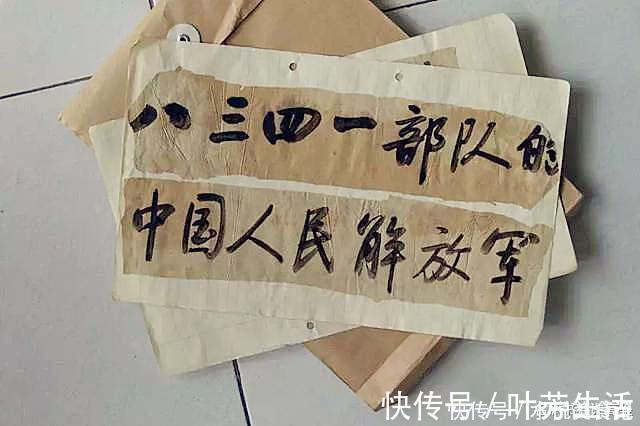 八三四一部队的
中国人民解放军
快传号/叶芳生活